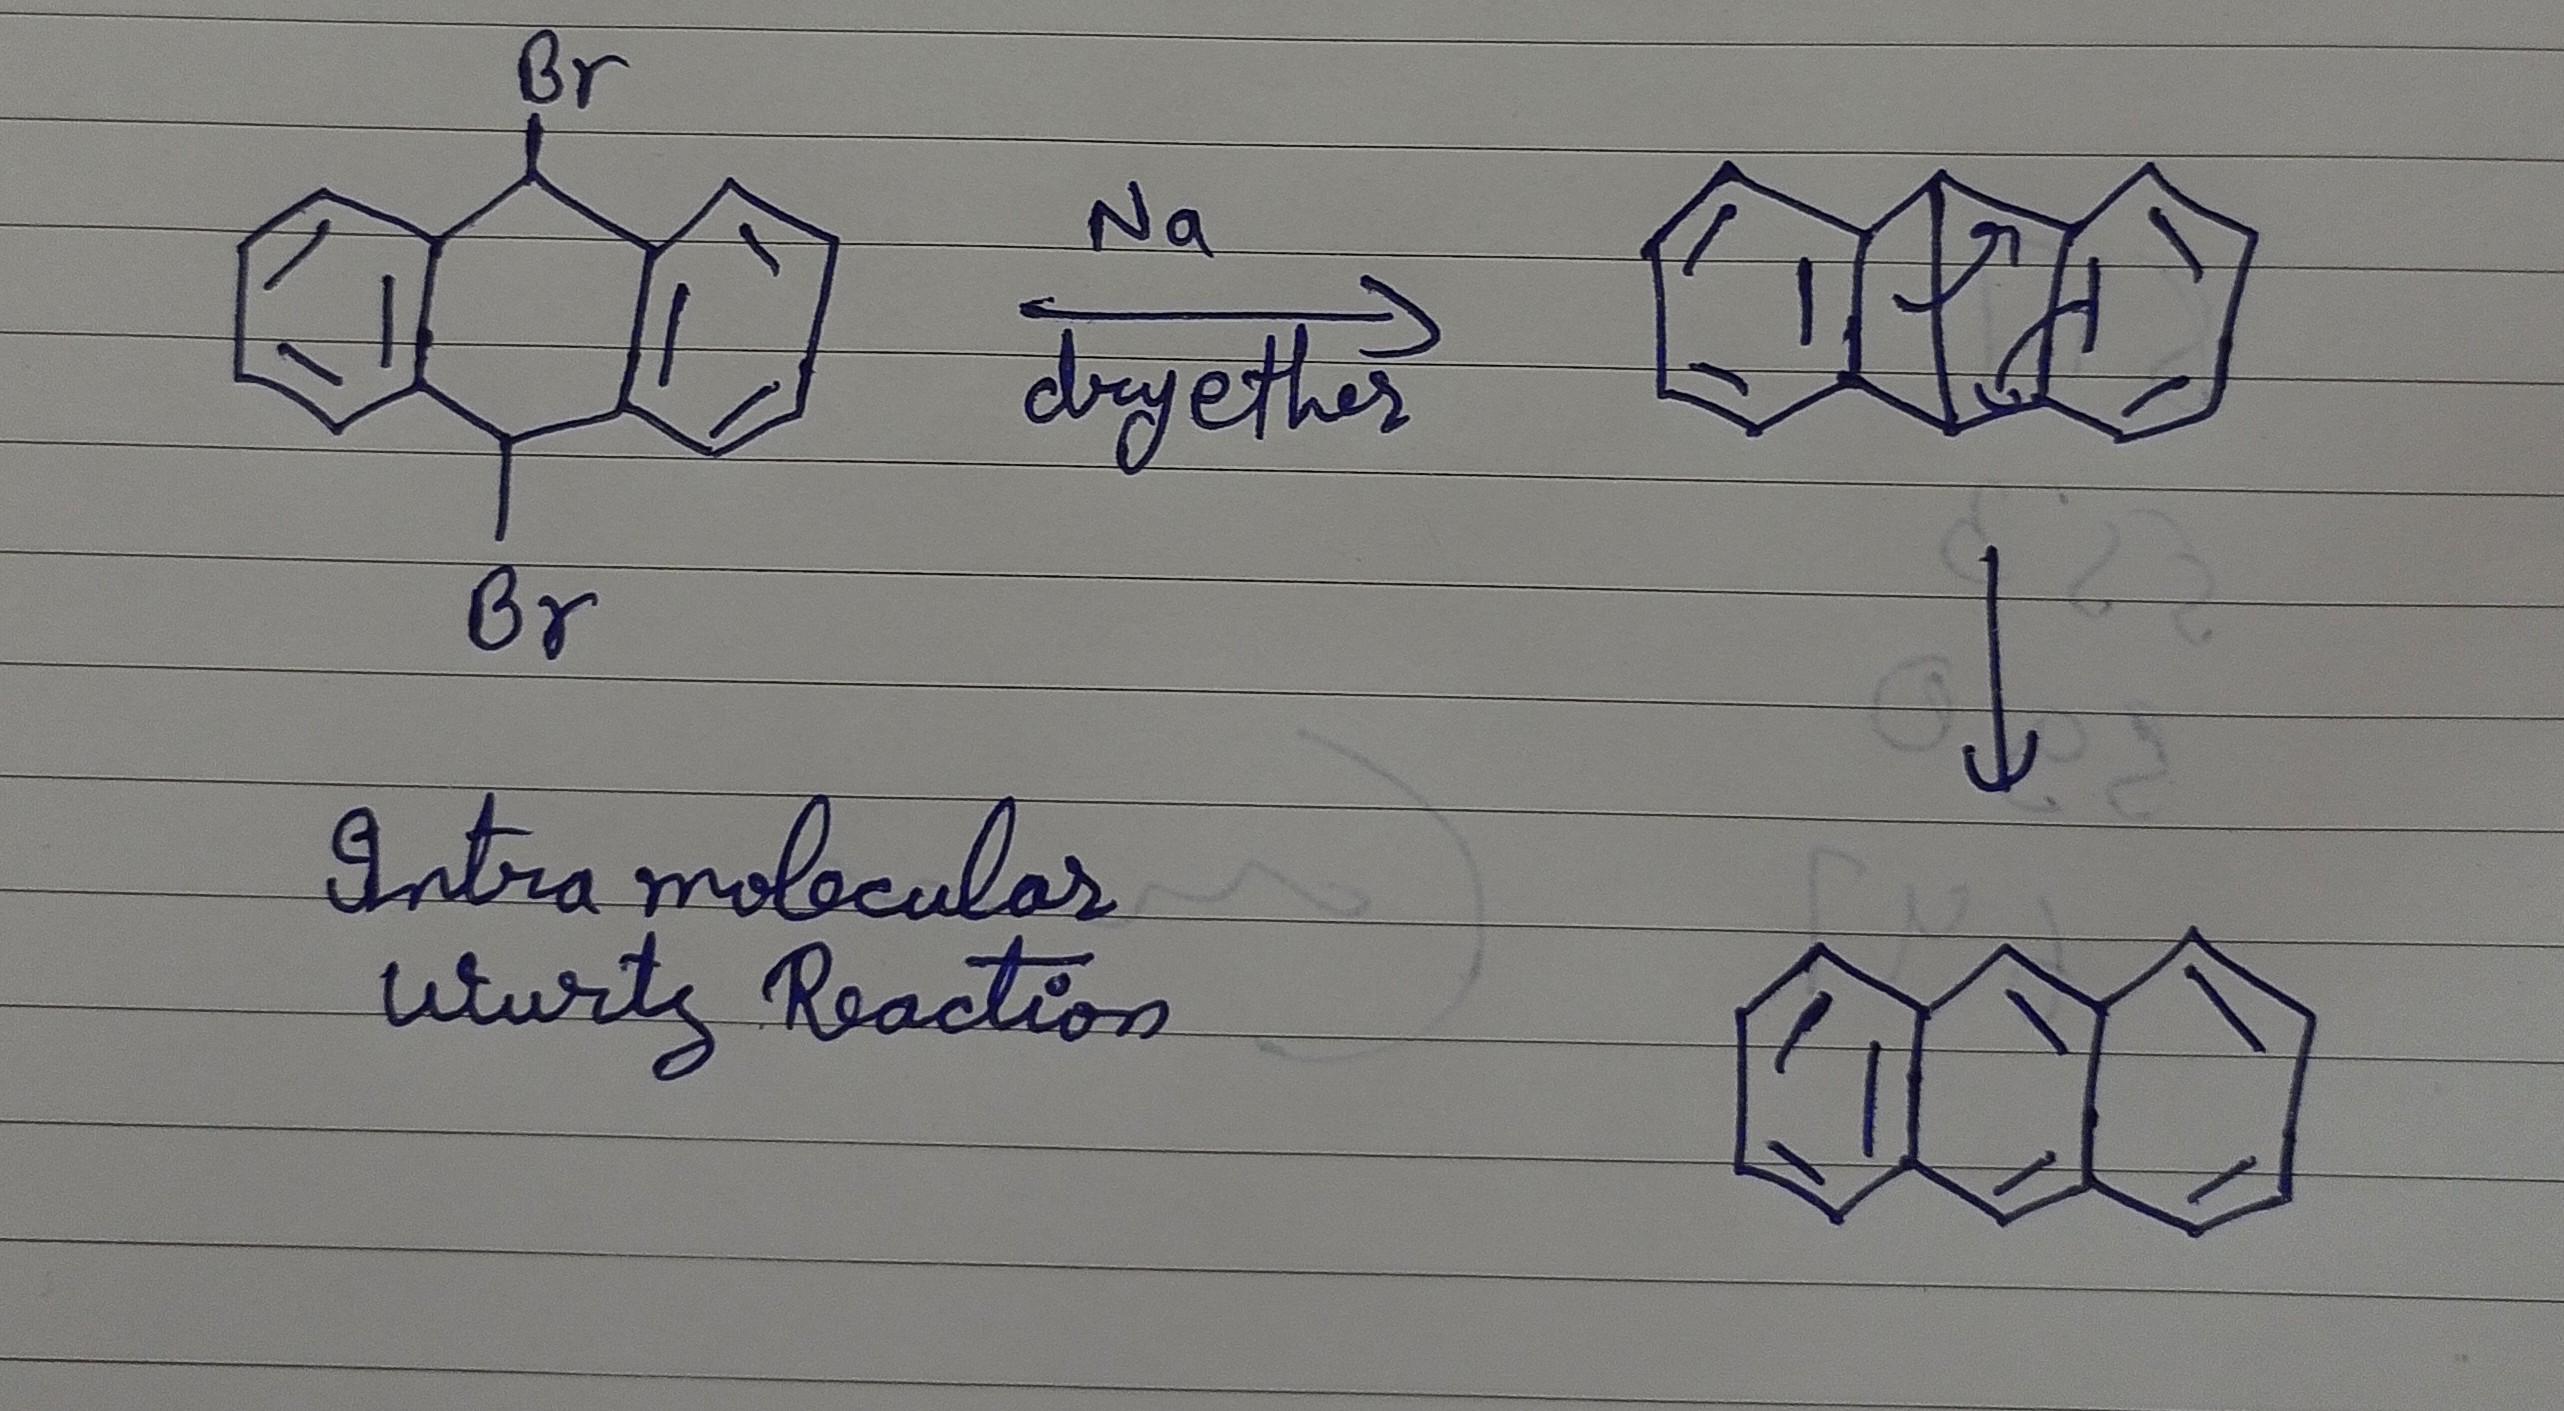 Br
Na
dry ether
Br
Intra molecular
Wurtz Reaction